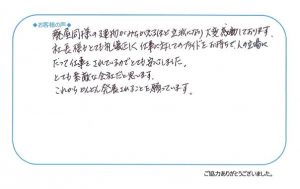 ◆お客様の声◆
廃屋同様の建物がみちがえるほど立派になり大変感動しております。
社長様もとても礼儀正しく仕事に対してのプライドをお持ちで、人の立場に
たって仕事をされているのでとても安心しました。
とても素敵な会社だと思います。
これからどんどん発展されることを願っています。
ご協力ありがとうございました。